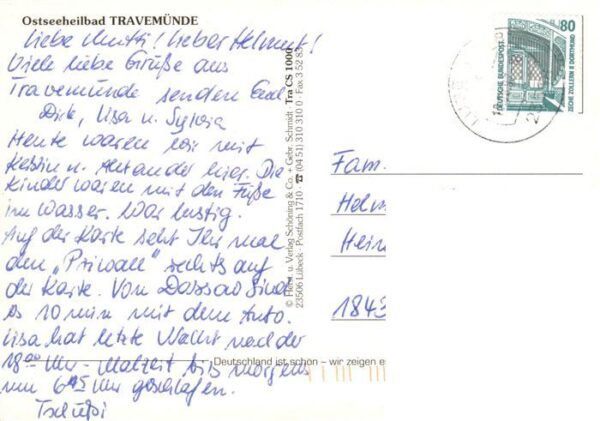 Ostseeheilbad TRAVEMÜNDE
Liebe Mutti! Lieber Helmut!
Viele liebe Grüße aus
Travemünde senden Euch
Dirk, Lisa u. Sylvia
Heute waren wir mit
Kerstin u. Alexander hier. Die
Kinder waren mit den Füße
im Wasser. War lustig.
Auf der Karte seht Ihr mal
den „Priwall" rechts auf
der Karte. Von Dassow sind
es 10 min mit dem Auto.
Lisa hat letzte Nacht nach der
18⁰⁰ Uhr - Malzeit bis morgens
um 6⁴⁵ Uhr geschlafen.
Tschüßi
© Herst. u. Verlag Schöning & Co. + Gebr. Schmidt · Tra CS 1000
23506 Lübeck · Postfach 1710 · ☎ (04 51) 310 310 0 · Fax 3 52 83
Deutschland ist schön – wir zeigen e
80
DEUTSCHE BUNDESPOST
ZECHE ZOLLERN II DORTMUND
Fam.
Helm
Hein
1843